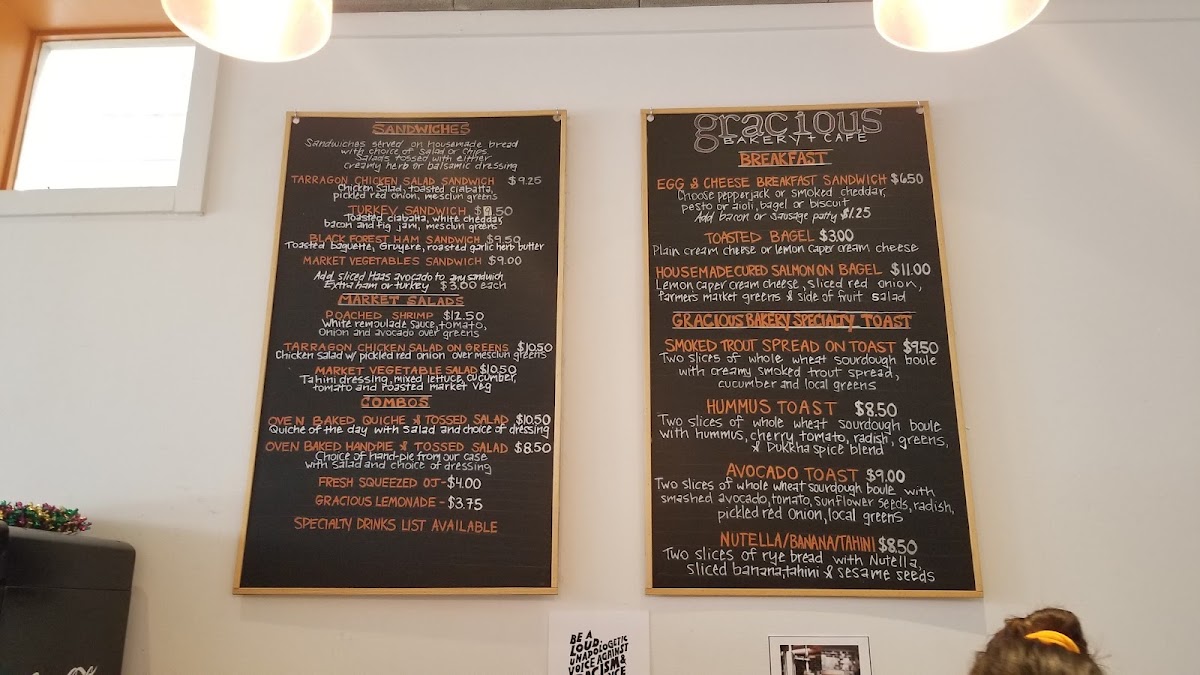 SANDWICHES
Sandwiches served on housemade bread
with choice of salad or chips.
Salads tossed with either
creamy herb or balsamic dressing
TARRAGON CHICKEN SALAD SANDWICH $9.25
Chicken Salad, toasted ciabatta,
pickled red onion, mesclun greens
TURKEY SANDWICH $9.50
Toasted ciabatta, white cheddar,
bacon and fig jam, mesclun greens
BLACK FOREST HAM SANDWICH $9.50
Toasted baguette, Gruyere, roasted garlic herb butter
MARKET VEGETABLES SANDWICH $9.00
Add sliced Haas avocado to any sandwich
Extra ham or turkey $3.00 each
MARKET SALADS
POACHED SHRIMP $12.50
White remoulade sauce, tomato,
Onion and avocado over greens
TARRAGON CHICKEN SALAD ON GREENS $10.50
Chicken Salad w/ pickled red onion over mesclun greens
MARKET VEGETABLE SALAD $10.50
Tahini dressing, mixed lettuce, cucumber,
tomato and roasted market veg
COMBOS
OVEN BAKED QUICHE & TOSSED SALAD $10.50
Quiche of the day with salad and choice of dressing
OVEN BAKED HANDPIE & TOSSED SALAD $8.50
Choice of hand-pie from our case
with salad and choice of dressing
FRESH SQUEEZED OJ - $4.00
GRACIOUS LEMONADE - $3.75
SPECIALTY DRINKS LIST AVAILABLE
gracious
BAKERY + CAFE
BREAKFAST
EGG & CHEESE BREAKFAST SANDWICH $6.50
Choose pepperjack or smoked cheddar,
pesto or aioli, bagel or biscuit
Add bacon or sausage patty $1.25
TOASTED BAGEL $3.00
Plain cream cheese or lemon caper cream cheese
HOUSEMADE CURED SALMON ON BAGEL $11.00
Lemon caper cream cheese, sliced red onion,
farmers market greens & side of fruit salad
GRACIOUS BAKERY SPECIALTY TOAST
SMOKED TROUT SPREAD ON TOAST $9.50
Two slices of whole wheat sourdough boule
with creamy smoked trout spread,
cucumber and local greens
HUMMUS TOAST $8.50
Two slices of whole wheat sourdough boule
with hummus, cherry tomato, radish, greens,
& Dukkha spice blend
AVOCADO TOAST $9.00
Two slices of whole wheat sourdough boule with
smashed avocado, tomato, sunflower seeds, radish,
pickled red onion, local greens
NUTELLA/BANANA/TAHINI $8.50
Two slices of rye bread with Nutella,
sliced banana, tahini & sesame seeds
BE A
LOUD,
UNAPOLOGETIC
VOICE AGAINST
RACISM &